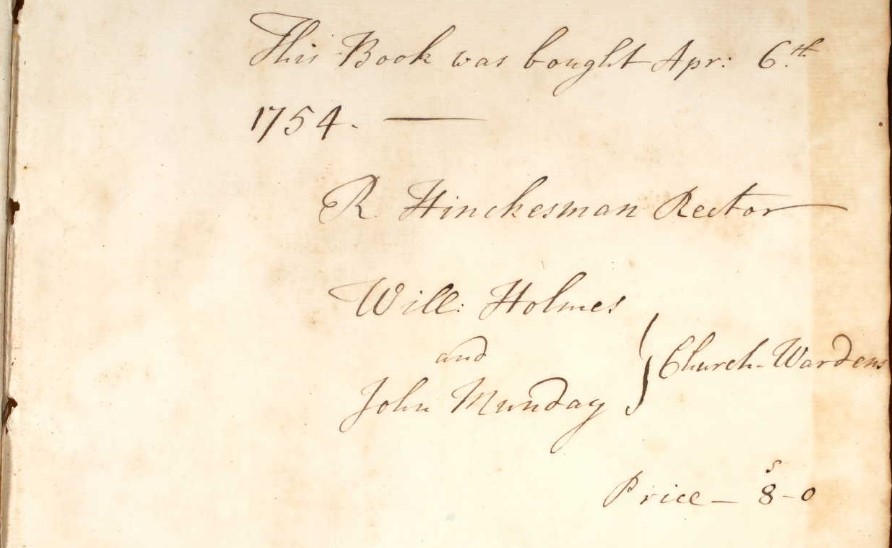 This Book was bought Apr: 6.th
1754. —
R Hinckesman Rector
Will: Holmes
and
John Munday } Church-Wardens
Price – 8s – 0